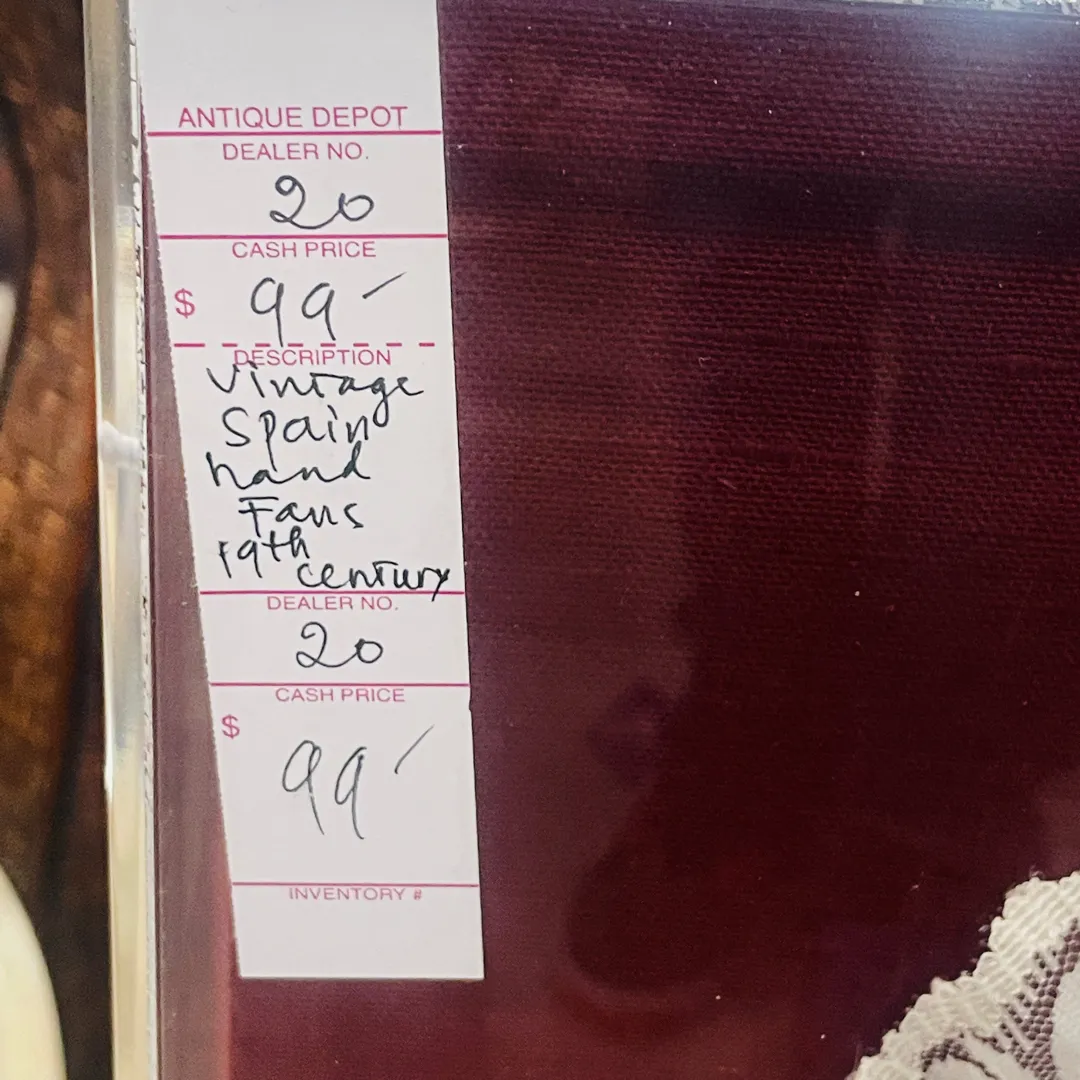 ANTIQUE DEPOT
DEALER NO.
20
CASH PRICE
$ 99-
DESCRIPTION
Vintage
Spain
hand
Fans
19th
century
DEALER NO.
20
CASH PRICE
$
99-
INVENTORY #